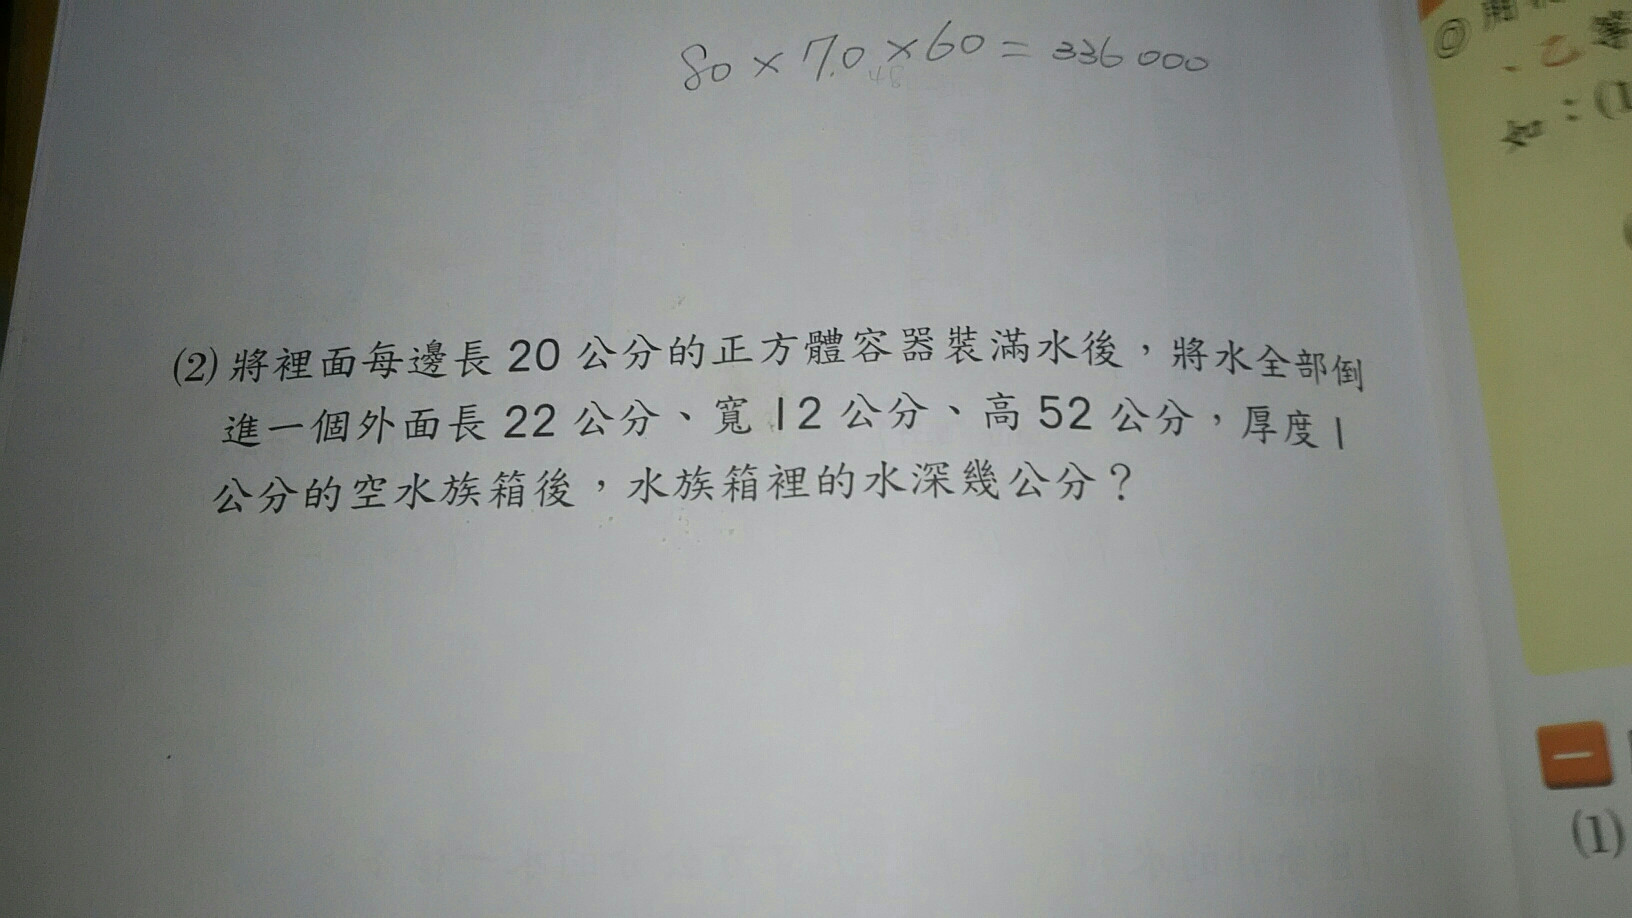 80 × 70 × 60 = 336000
(2) 將裡面每邊長 20 公分的正方體容器裝滿水後，將水全部倒
進一個外面長 22 公分、寬 12 公分、高 52 公分，厚度 1
公分的空水族箱後，水族箱裡的水深幾公分？
一
(1)